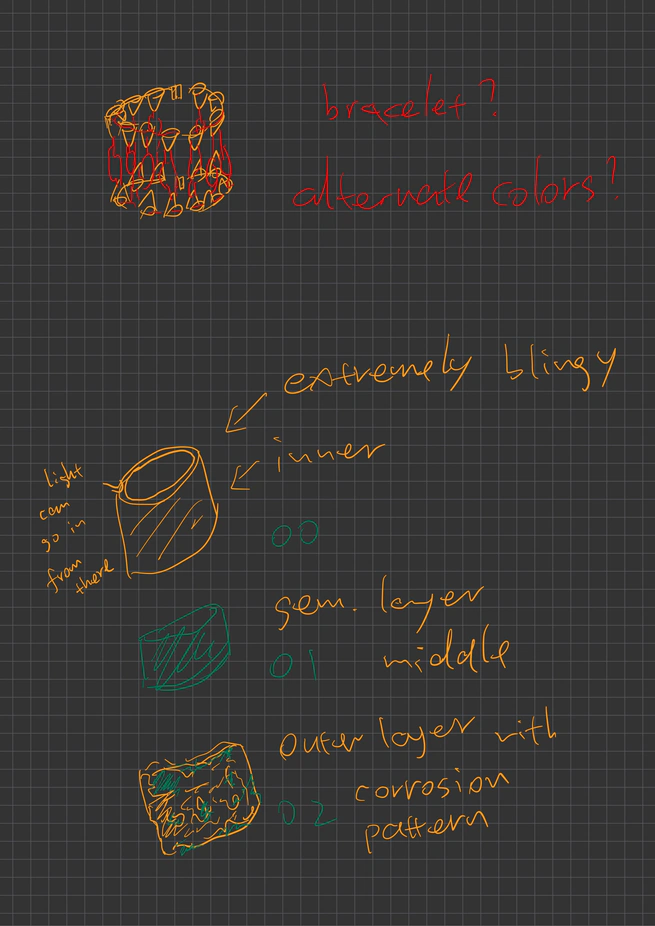 bracelet?
alternate colors?
extremely blingy
inner
light
can
go in
from
there
00
gem. layer
01 middle
outer layer with
02 corrosion
pattern